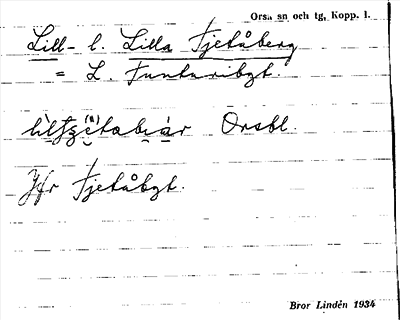 Orsa sn och tg, Kopp. l.
Lill- l. Lilla Fjetåberg
= L. Funtaribgt.
Orsbl.
Jfr Fjetåbgt.
Bror Lindén 1934